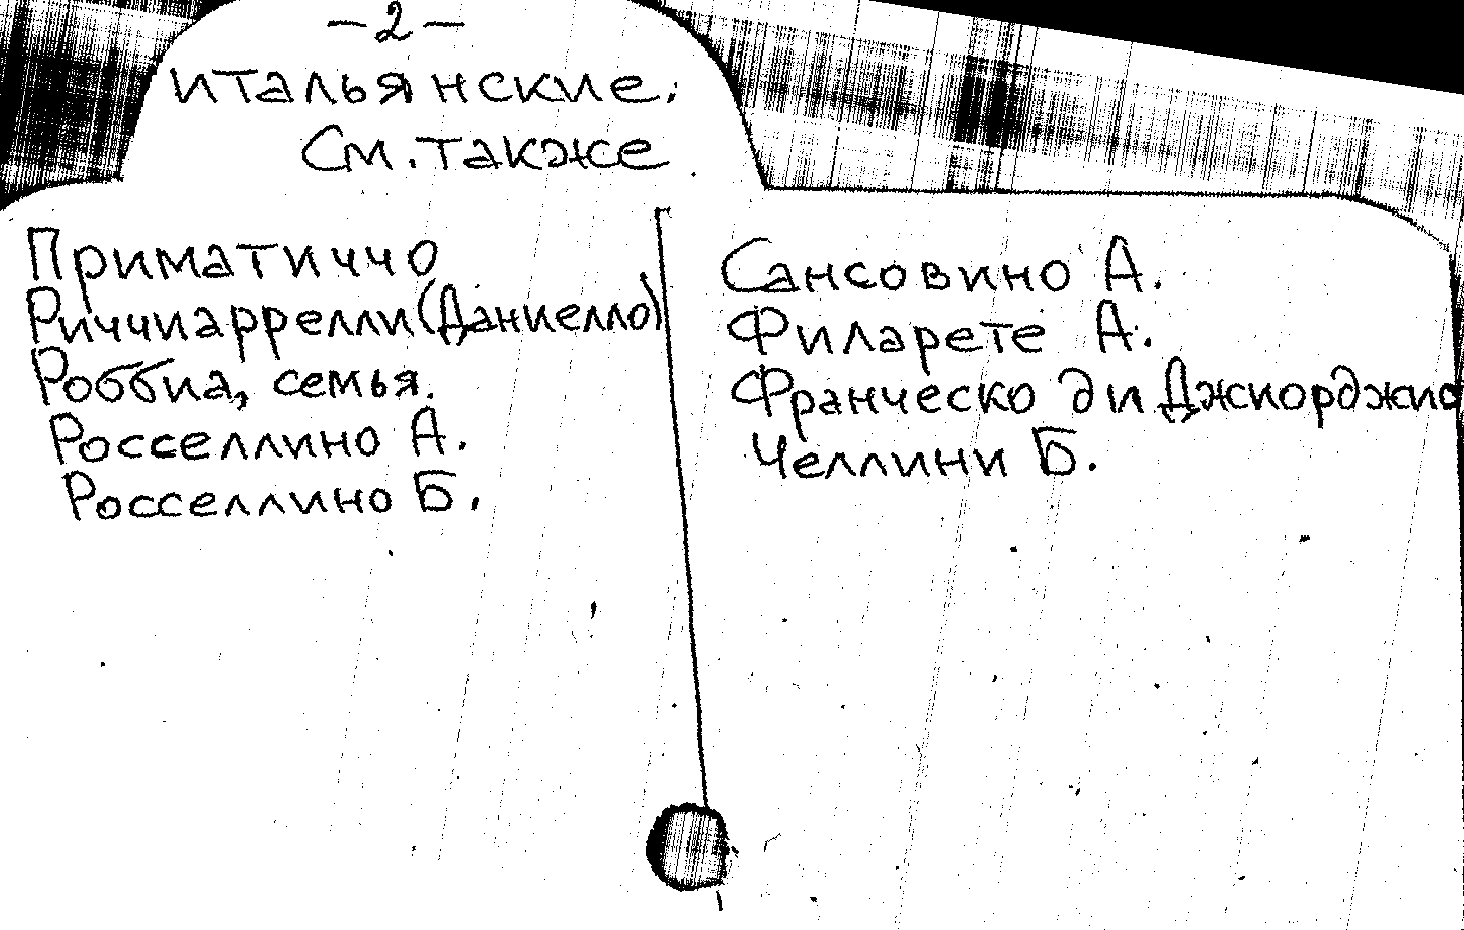 -2-
итальянские.
См. также
Приматиччо
Риччиаррелли (Даниелло)
Роббиа, семья.
Росселлино А.
Росселлино Б.
Сансовино А.
Филарете А.
Франческо ди Джиорджио
Челлини Б.